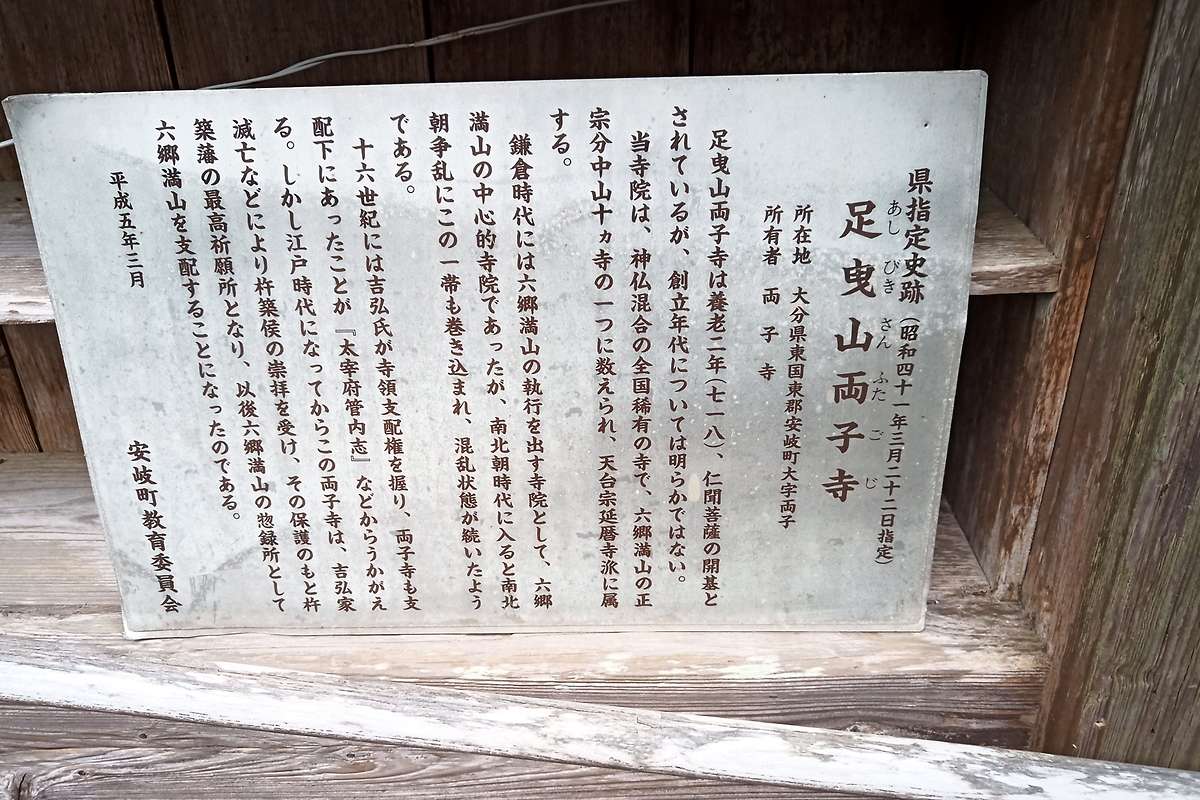 県指定史跡(昭和四十一年三月二十二日指定)
あし びき さん ふた ご じ
足曳山両子寺
所在地 大分県東国東郡安岐町大字両子
所有者 両子寺
足曳山両子寺は養老二年(七一八)、仁聞菩薩の開基と
されているが、創立年代については明らかではない。
当寺院は、神仏混合の全国稀有の寺で、六郷満山の正
宗分中山十ヵ寺の一つに数えられ、天台宗延暦寺派に属
する。
鎌倉時代には六郷満山の執行を出す寺院として、六郷
満山の中心的寺院であったが、南北朝時代に入ると南北
朝争乱にこの一帯も巻き込まれ、混乱状態が続いたよう
である。
十六世紀には吉弘氏が寺領支配権を握り、両子寺も支
配下にあったことが『太宰府管内志』などからうかがえ
る。しかし江戸時代になってからこの両子寺は、吉弘家
滅亡などにより杵築侯の崇拝を受け、その保護のもと杵
築藩の最高祈願所となり、以後六郷満山の惣録所として
六郷満山を支配することになったのである。
平成五年三月
安岐町教育委員会